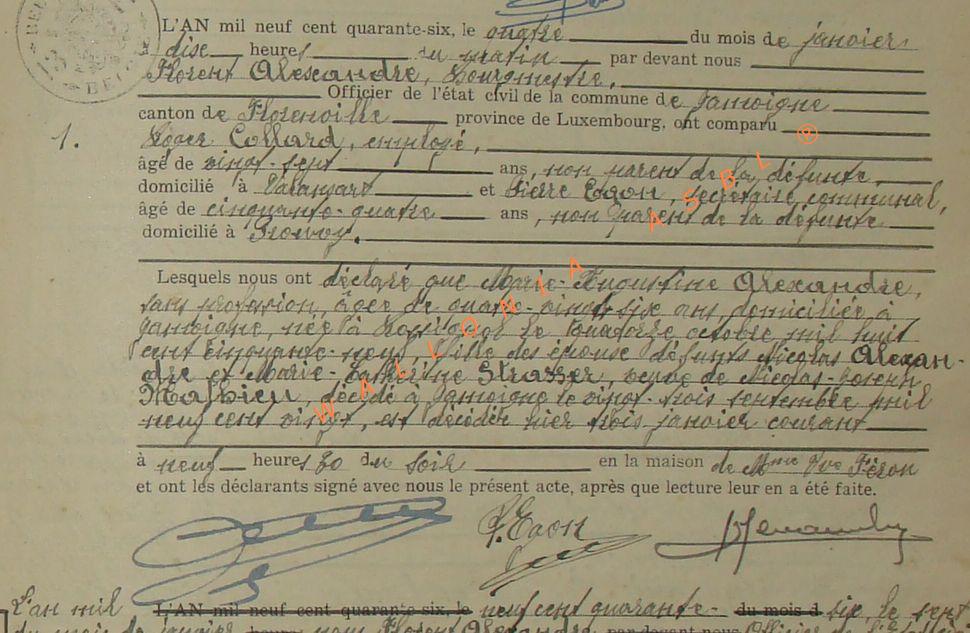 L'AN mil neuf cent quarante-six, le quatre du mois de janvier
à dise heures du matin par devant nous
Florent Alexandre, Bourgmestre,
Officier de l'état civil de la commune de Jamoigne
canton de Florenville province de Luxembourg, ont comparu
1. Roger Collard, employé,
âgé de vingt-sept ans, non parent de la défunte,
domicilié à Valansart et Pierre Eagon, secrétaire communal,
âgé de cinquante-quatre ans, non parent de la défunte
domicilié à Prouvy.
Lesquels nous ont déclaré que Marie-Augustine Alexandre,
sans profession, âgée de quatre-vingt six ans, domiciliée à
Jamoigne, née à Rossignol le quatorze octobre mil huit
cent cinquante-neuf, fille des épouse défunts Nicolas Alexan-
dre et Marie-Catherine Strasser, veuve de Nicolas-Joseph
Mathieu, décédé à Jamoigne le vingt-trois septembre mil
neuf cent vingt, est décédée hier trois janvier courant
à neuf heures 30 du soir en la maison de Mme Vve Féron
et ont les déclarants signé avec nous le présent acte, après que lecture leur en a été faite.
WALLONIA ASBL ®
L'an mil L'AN mil neuf cent quarante-six, le neuf cent quarante- du mois d six, le sept
du mois de janvier heures nous Florent Alexandre par devant nous Officier